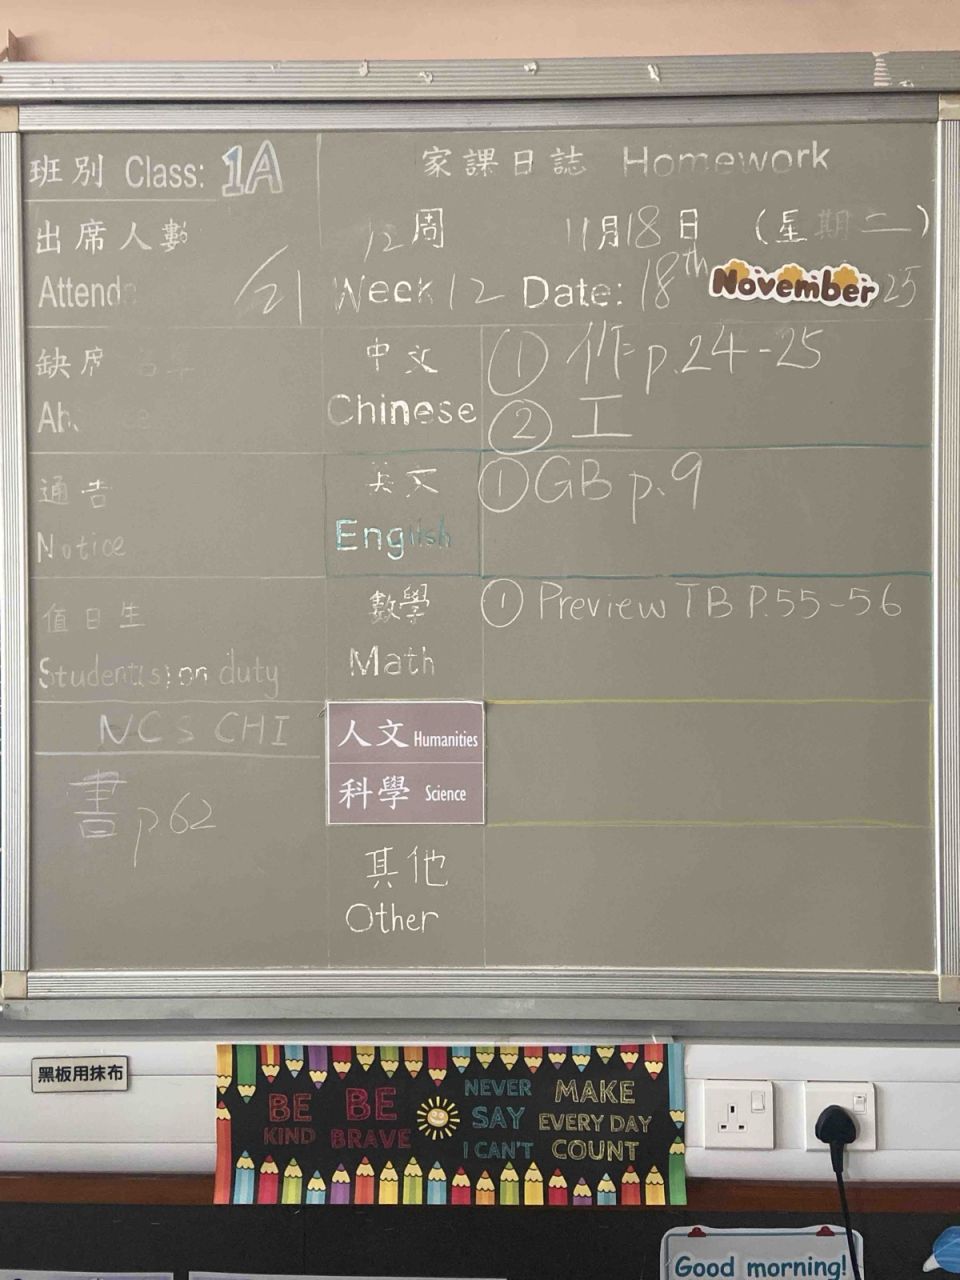 班別 Class: 1A
家課日誌 Homework
出席人數
12周 11月18日 (星期二)
Attend
/21
Week 12 Date: 18th November 25
缺席
中文
Chinese
① 作 p.24-25
② 工
通告
Notice
英文
English
① GB p.9
值日生
Student(s) on duty
數學
Math
① Preview TB P.55-56
NCS CHI
書 p62
人文 Humanities
科學 Science
其他
Other
黑板用抹布
BE KIND
BE BRAVE
NEVER SAY I CAN'T
MAKE EVERY DAY COUNT
Good morning!